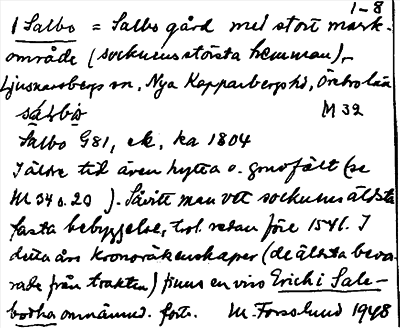 1-8
1 Salbo = Salbo gård med stort mark-
område (socknens största hemman),
Ljusnarsbergs sn, Nya Kopparbergs hd, Örebro län
M 32
Salbo G81, ek, ka 1804
I äldre tid även hytta o. gruvfält (se
M 34 o. 20 ). Såvitt man vet socknens äldsta
fasta bebyggelse, trol. redan före 1541. I
detta års kronoräkenskaper (de äldsta beva-
rade från trakten) finns en viss Erich i Sale-
bodha omnämnd. forts. M. Forslund 1948